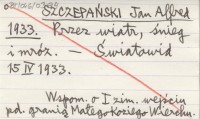 SZCZEPAŃSKI Jan Alfred
1933. Przez wiatr, śnieg
i mróz. – Światowid
15 IV 1933.
Wspom. o I zim. wejściu
pd. granią Małego Koziego Wierchu.